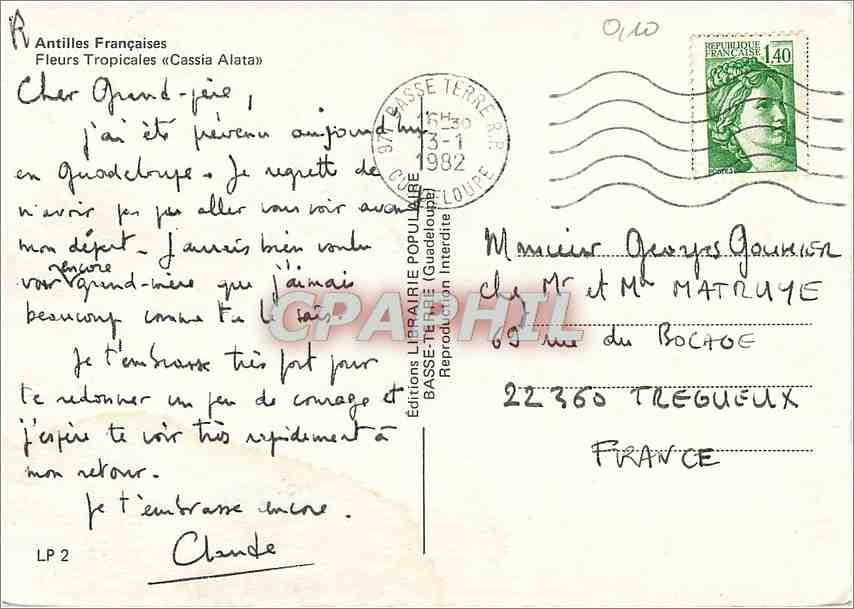 R
0,10
Antilles Françaises
Fleurs Tropicales «Cassia Alata»
Cher Grand-père,
j'ai été prévenu aujourd'hui
en Guadeloupe. Je regrette de
n'avoir pas pu aller vous voir avant
mon départ. J'aurais bien voulu
voir encore grand-mère que j'aimais
beaucoup comme tu le sais.
Je t'embrasse très fort pour
te redonner un peu de courage et
j'espère te voir très rapidement à
mon retour.
Je t'embrasse encore.
Claude
LP 2
Éditions LIBRAIRIE POPULAIRE
BASSE-TERRE (Guadeloupe)
Reproduction Interdite
971 BASSE TERRE R.P.
16H30
13-1
1982
GUADELOUPE
REPUBLIQUE
FRANÇAISE
1,40
POSTES
Monsieur Georges
chez Mr et Mme MATRUYE
69 rue du BOCAGE
22360 TREGUEUX
FRANCE
CPARPHIL